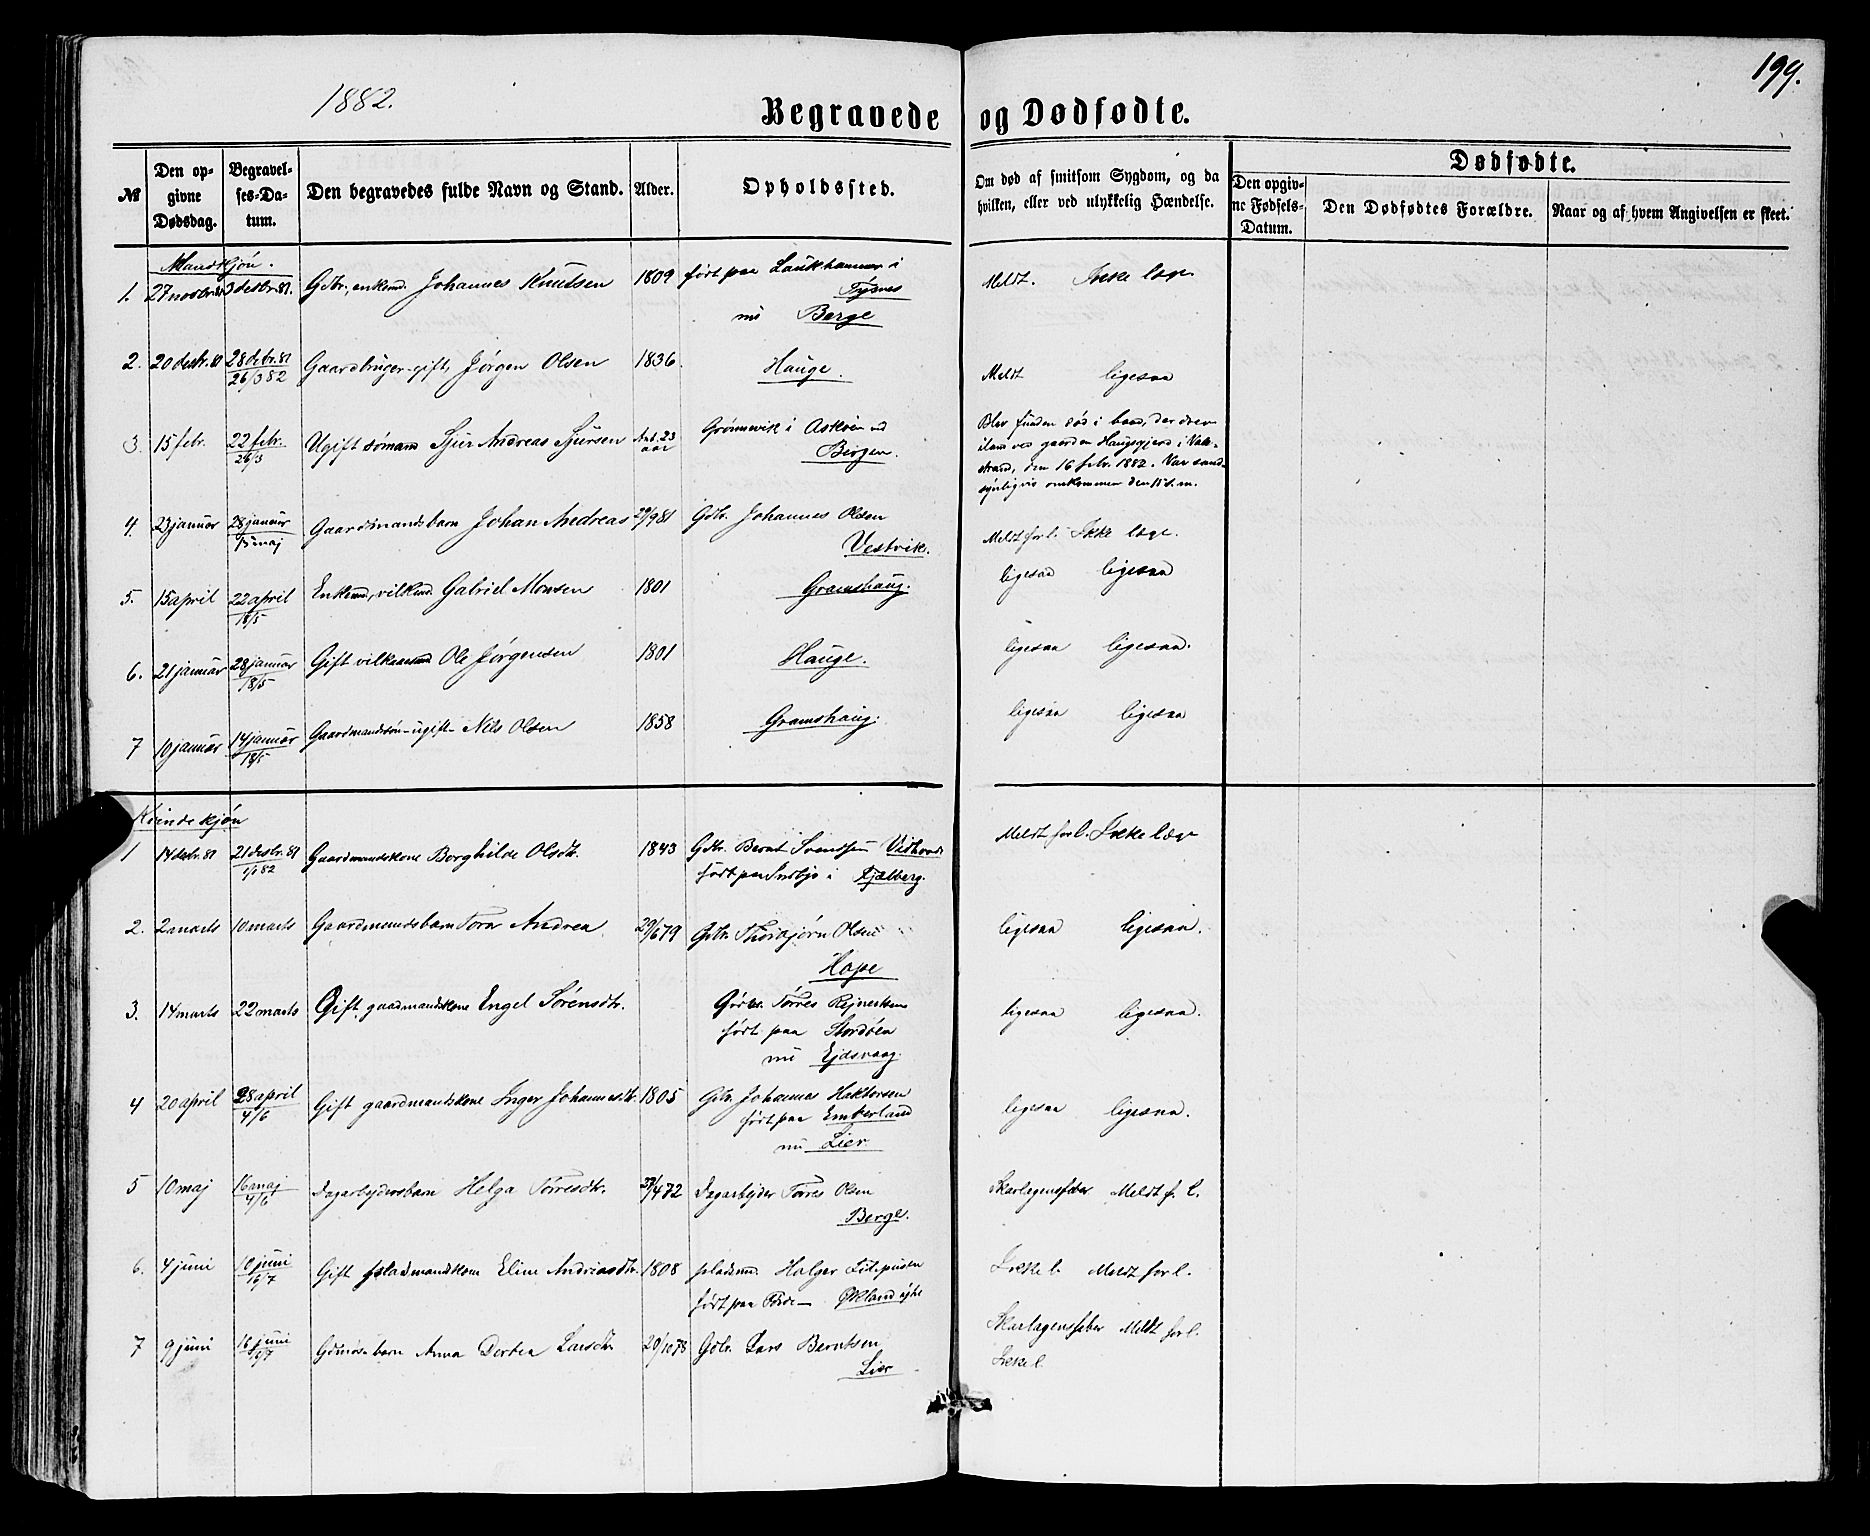 1882.
199.
Begravede og Dødfødte.
№
Den opgivne Dødsdag.
Begravelses-Datum.
Den begravedes fulde Navn og Stand.
Alder.
Opholdssted.
Om død af smitsom Sygdom, og da hvilken, eller ved ulykkelig Hændelse.
Dødfødte.
Den opgivne Fødsels-Datum.
Den Dødfødtes Forældre.
Naar og af hvem Angivelsen er skeet.
Mandkjön.
1. 27 novbr. 81 3 desbr. 81. Gdbr., enkemd. Johannes Knutsen 1809 født paa Laukhammer i Meldt. Ikke læge
Tysnes
nu Berge
2. 20 desbr. 81 28 debr. 81 Gaardbruger gift, Jørgen Olsen 1836 Hauge. Meldt ligesaa
26/3 82
3. 15 febr. 22 febr. Ugift sømand Sjur Andreas Sjursen Ant. 23 aar Grønnevik i Askøen ved
26/3
Bergen.
Blev funden død i baad, der drev
iland ved gaarden Haugsgjerd i Vale-
strand, den 16 febr. 1882. Var sand-
synligvis omkommen den 15 s. m.
4. 23 januar 28 januar Gaardmandsbarn Johan Andreas 29/9 81 Gdbr. Johannes Olsen Meldt for l. Ikke læge.
maj
Vestvik.
5. 15 april 22 april Enkemd, vilkmd Gabriel Monsen 1801 Gramshaug. ligesaa ligesaa
18/5
6. 21 januar 28 januar Gift vilkaarsmd Ole Jørgensen 1801 Hauge. ligesaa ligesaa.
18/5
7 10 januar 14 januar Gaardmandssøn - ugift - Nils Olsen 1858 Gramshaug. ligesaa ligesaa
18/5
Kvindekjön
1 14 desbr. 81 21 desbr. 81 Gaardmandskone Borghilde Olsdtr. 1843 Gdbr. Bernt Svensen Meldt for l. Ikke læge
1/1 82
født paa i Kjelberg.
2. 2 marts 10 marts Gaardmandsbarn Tora Andrea 29/6 79 Gdbr. Thorbjørn Olsen ligesaa ligesaa.
Hope
3. 14 marts 22 marts Gift gaardmandskone Engel Sørensdtr. Gdbr. Tørres ligesaa ligesaa.
født paa Stordøen
nu Ejdsvaag.
4 20 april 28 april Gift gaardmandskone Inger Johannesdtr. 1805 Gdbr. Johannes Haktorsen ligesaa ligesaa.
4/6
født paa Emberland
nu Lier
5 10 maj 16 maj Dagarbejdersbarn Helga Tørresdtr. 27/4 72 Dagarbejder Tørres Olsen Skarlagensfeber Meldt f. l.
4/6
Berge.
6. 4 juni 10 juni Gift pladsmandskone Eline Andreasdtr. 1808 pladsmd. Holger Ikke l. Meldt for l.
16/7
født paa Økland
7 9 juni 16 juni Gdmdsbarn Anna Dortea Larsdtr 20/10 78 Gdbr. Lars Berntsen Skarlagensfeber Meldt for l.
Ikke l.
Lier